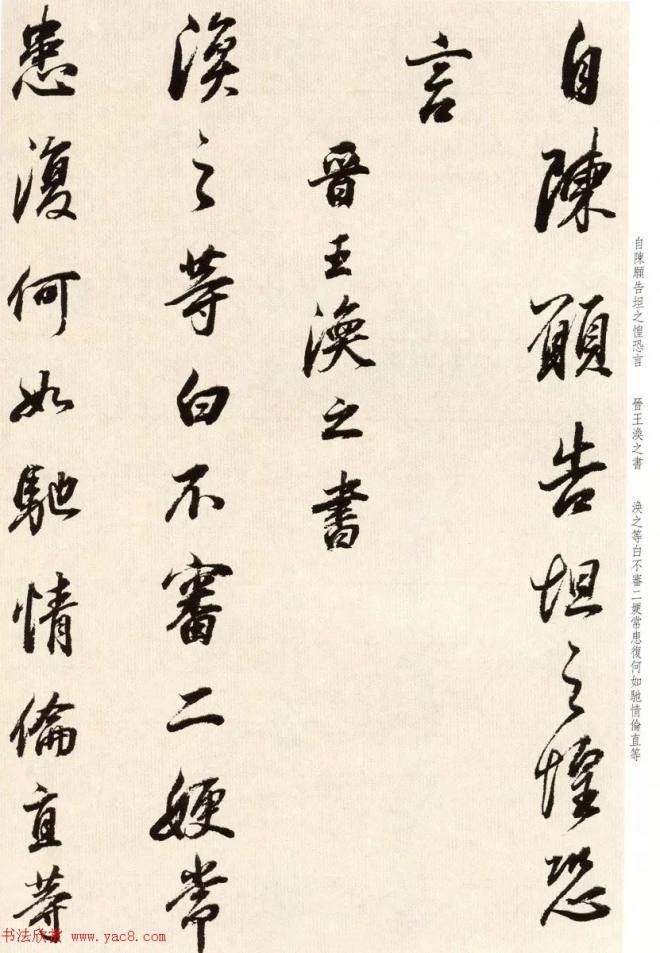 自陳願告坦之惶恐
言
晉王渙之書
渙之等白不審二嫂常
患復何如馳情倫直等
自陳願告坦之惶恐言 晉王渙之書 渙之等白不審二嫂常患復何如馳情倫直等
书法欣赏 www.yac8.com